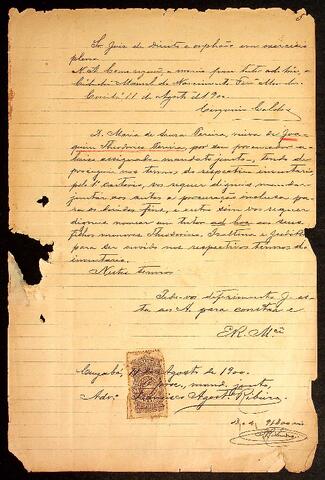 Sr. Juiz de Direito e orphãos em exercicio
pleno
N. A. Como requer, e nomeio para tutor ad-hoc, o
Cidadão Manoel do Nascimento
Cuyabá 11 de Agosto de 1900
D. Maria de Souza Pereira, viuva de Joa-
quim Theodorico Pereira, por seu procurador a-
baixo assignado mandato junto, tendo de
proseguir nos termos do respectivo inventario,
pelo 1º cartorio, vos requer digneis mandar
juntar aos autos a procuração inclusa pa-
ra os devidos fins, e outro sim vos requer
digneis nomear um tutor ad hoc aos seus
filhos menores Theodorico, e
para ser ouvido nos respectivos termos do
inventario.
Nestes termos
Pede-vos deferimento J. es-
ta ao A. para constar e
E. R. Mcê
Cuyabá, 11 de Agosto de 1900.
O proc., mand. junto,
Advº Agostº Ribeiro